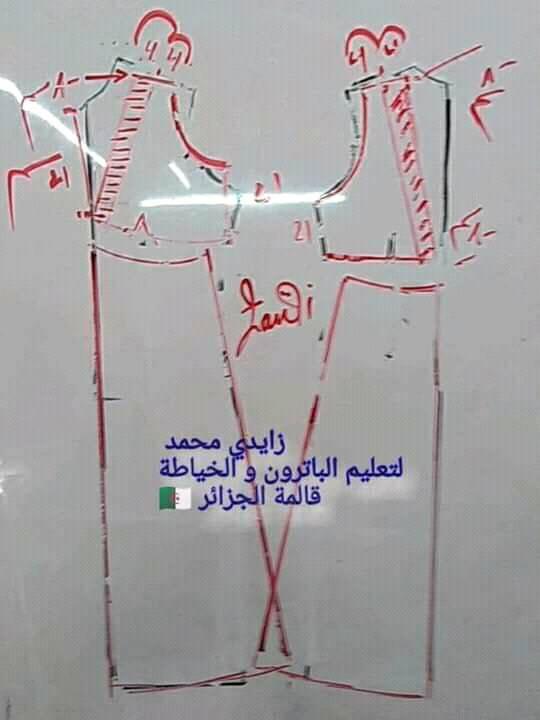 4 4
4 4
8
8
21
21
Zaidi
زايدي محمد
لتعليم الباترون و الخياطة
قالمة الجزائر